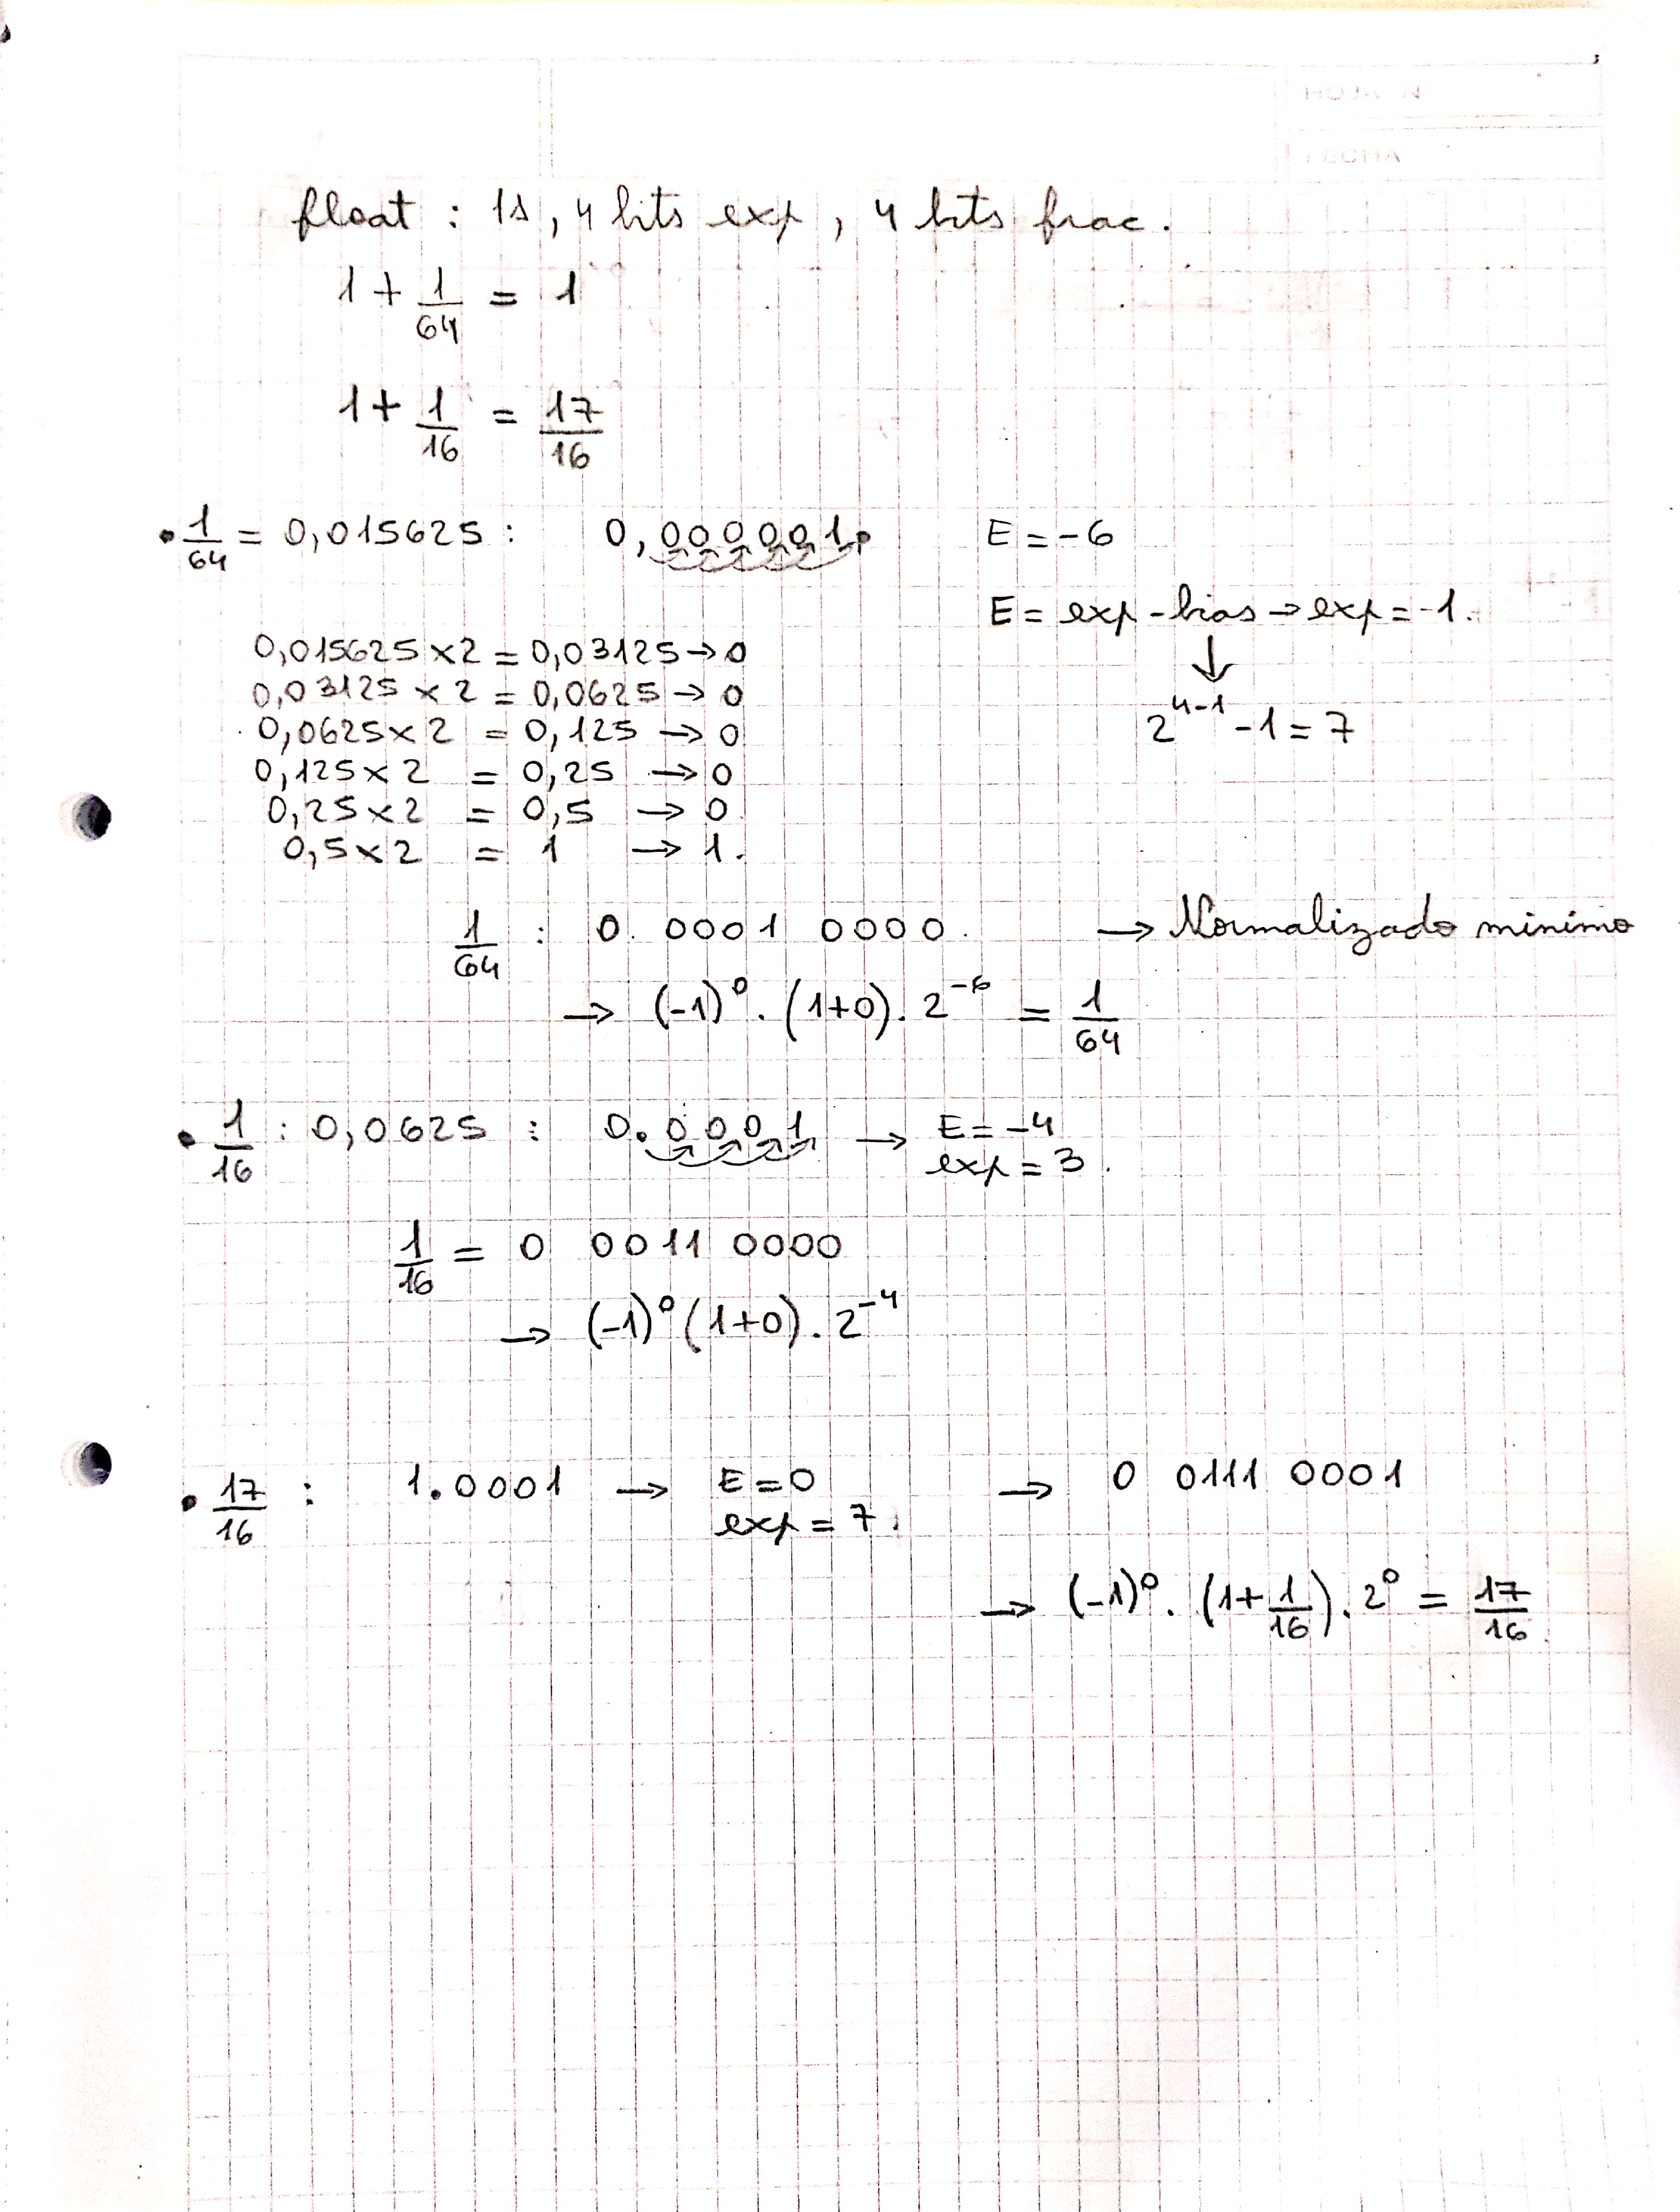 HOJA N
FECHA
float : 1s, 4 bits exp, 4 bits frac.
1 + 1/64 = 1
1 + 1/16 = 17/16
• 1/64 = 0,015625 : 0,000001. E = -6
E = exp - bias → exp = -1.
↓
2^(4-1) - 1 = 7
0,015625 x 2 = 0,03125 → 0
0,03125 x 2 = 0,0625 → 0
0,0625 x 2 = 0,125 → 0
0,125 x 2 = 0,25 → 0
0,25 x 2 = 0,5 → 0
0,5 x 2 = 1 → 1.
1/64 : 0 0001 0000. → Normalizado minimo
→ (-1)^0 . (1+0) . 2^-6 = 1/64
• 1/16 : 0,0625 : 0.0001 → E = -4
exp = 3.
1/16 = 0 0011 0000
→ (-1)^0 (1+0) . 2^-4
• 17/16 : 1.0001 → E = 0 → 0 0111 0001
exp = 7.
→ (-1)^0 . (1 + 1/16) . 2^0 = 17/16